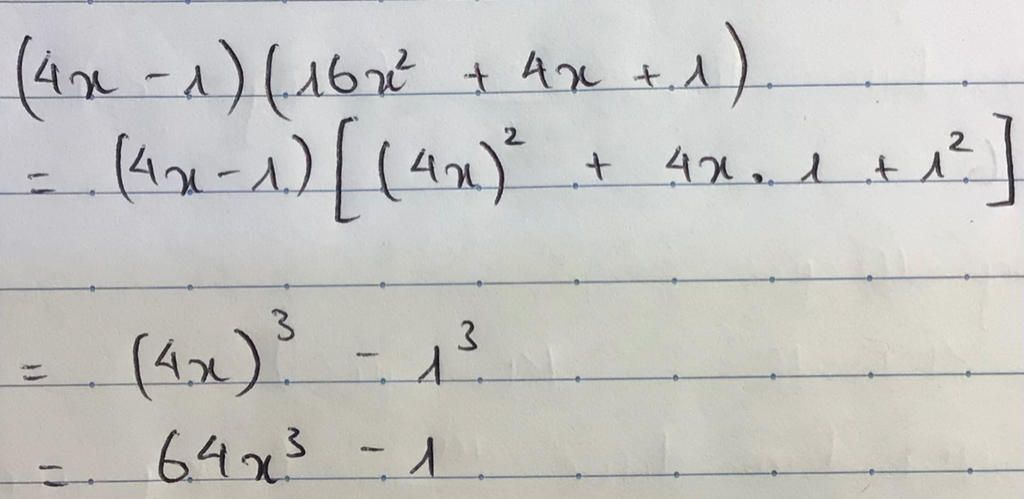 (4x - 1)(16x² + 4x + 1)
= (4x - 1)[(4x)² + 4x . 1 + 1²]
= (4x)³ - 1³
= 64x³ - 1